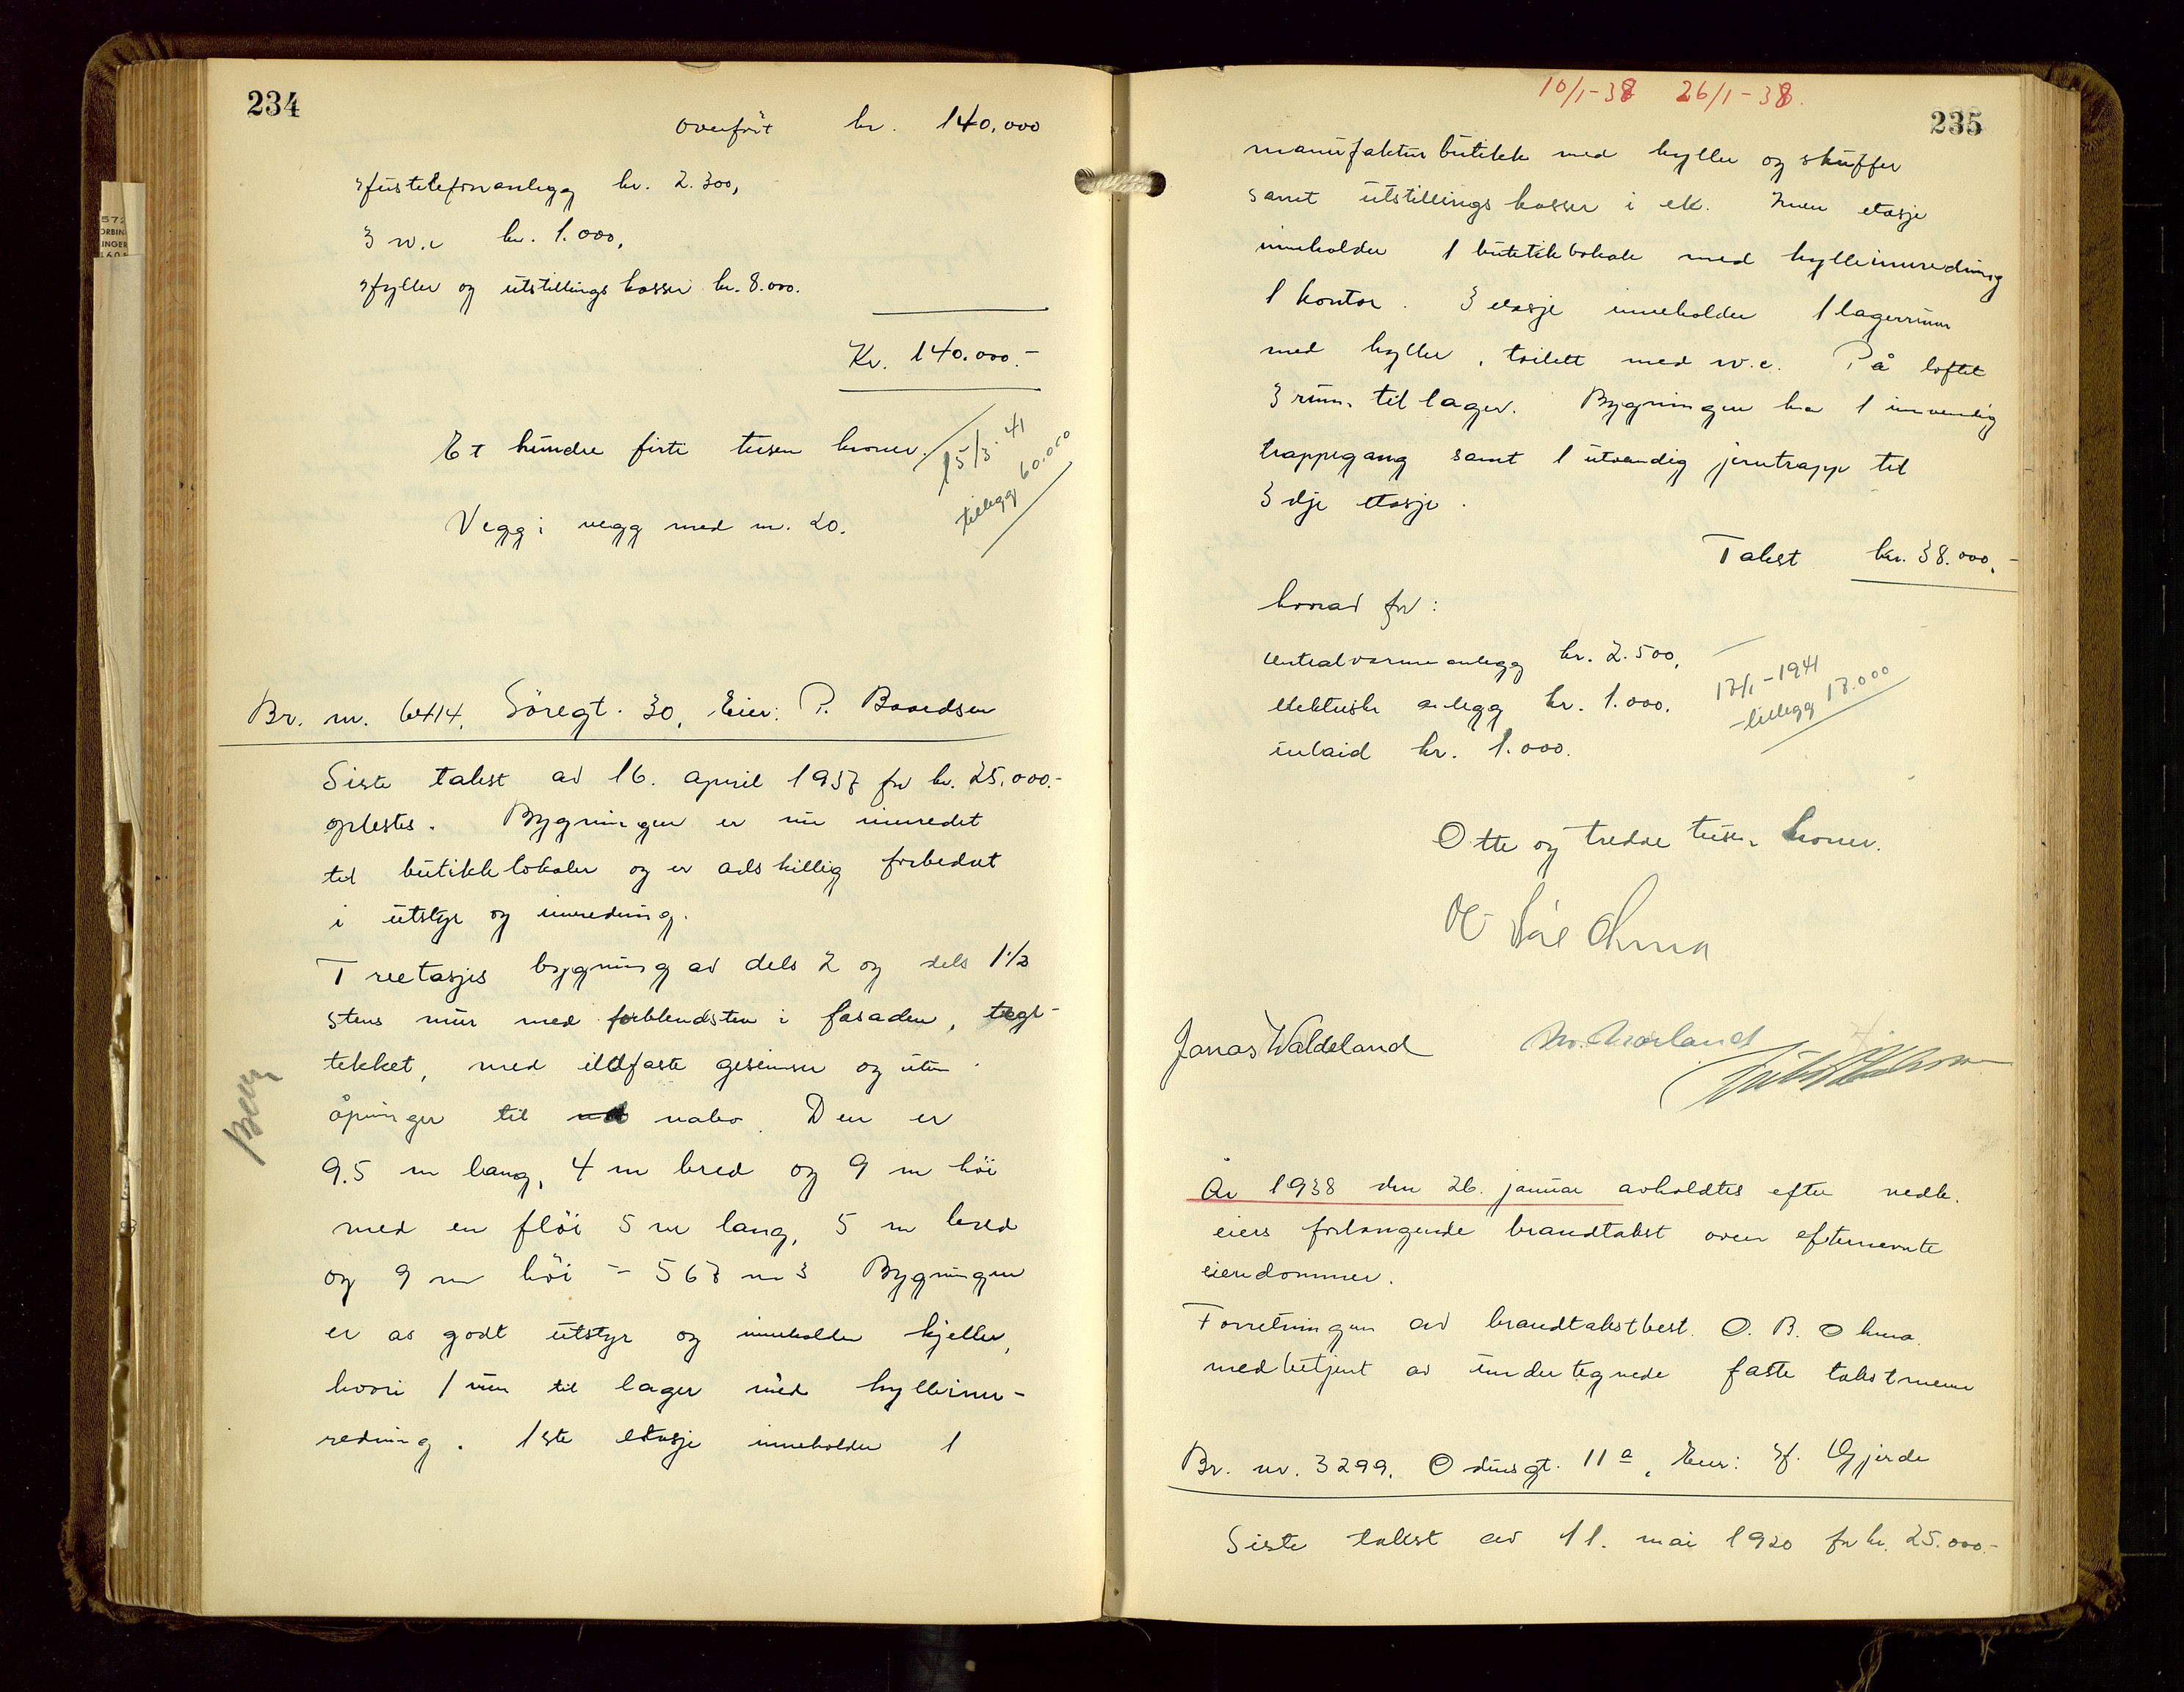 234
overført kr. 140.000
Hustelefonanlegg kr. 2.300,
3 w.c kr. 1.000,
Hyller og utstillings kasser kr. 8.000.
Kr. 140.000.-
Et hundre firti tusen kroner.
15/3. 41
tillegg 60.000
Vegg i vegg med nr. 20.
Br. nr. 6414, Söregt. 30, Eier: P. Baardsen
Siste takst av 16. april 1937 for kr. 25.000.-
oplestes. Bygningen er nu innredet
til butikklokaler og er adskillig forbedret
i utstyr og innredning.
Treetasjes bygning av dels 2 og dels 1 1/2
stens mur med forblendsten i fasaden, tegl-
tekket, med ildfaste gesimser og uten
åpninger til nabo. Den er
9.5 m lang, 4 m bred og 9 m höi
med en flöi 5 m lang, 5 m bred
og 9 m höi = 567 m3 Bygningen
er av godt utstyr og inneholder kjeller,
hvori 1 rum til lager med hylleinn-
redning. 1ste etasje inneholder 1
10/1-38 26/1-38.
235
manufakturbutikk med hyller og skuffer
samt utstillings kasser i ek. 2nen etasje
inneholder 1 butikklokale med hylleinnredning
1 kontor. 3 etasje inneholder 1 lagerrum
med hyller, toilett med w.c. På loftet
3 rum til lager. Bygningen har 1 innvendig
trappegang samt 1 utvendig jerntrapp til
3dje etasje.
Takst kr. 38.000.-
hvorav for:
centralvarmeanlegg kr. 2.500,
elektrisk anlegg kr. 1.000.
inlaid kr. 1.000.
17/1-1941
tillegg 17.000
Otte og tredve tusen kroner.
Jonas Waldeland
År 1938 den 26. januar avholdtes efter vedk.
eiers forlangende brandtakst over efternevnte
eiendommer.
Forretningen av brandtakstbest. O. B. Ohma
medbetjent av undertegnede faste takstmenn
Br. nr. 3299. Odinsgt. 11 a, Eier: H. Gjerde
Siste takst av 11. mai 1920 for kr. 25.000.-